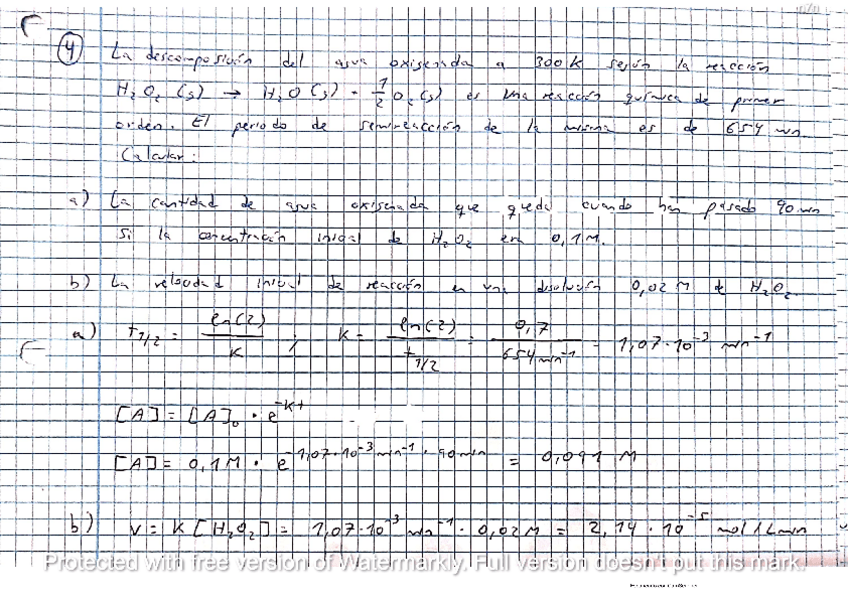 4) La descomposición del agua oxigenada a 300 K según la reacción
H₂O₂ (g) → H₂O (g) + 1/2 O₂ (g) es una reacción química de primer
orden. El periodo de semireacción de la misma es de 654 min
Calcular:
a) La cantidad de agua oxigenada que queda cuando han pasado 90 min
si la concentración inicial de H₂O₂ era 0,1 M.
b) La velocidad inicial de reacción en una disolución 0,02 M de H₂O₂.
a) t1/2 = ln(2)/K ; K = ln(2)/t1/2 = 0,7/654 min⁻¹ = 1,07·10⁻³ min⁻¹
[A] = [A]₀ · e^-Kt
[A] = 0,1 M · e^-1,07·10⁻³ min⁻¹ · 90 min = 0,091 M
b) v = K [H₂O₂] = 1,07·10⁻³ min⁻¹ · 0,02 M = 2,14 · 10⁻⁵ mol/L min
Protected with free version of Watermarkly. Full version doesn't put this mark.